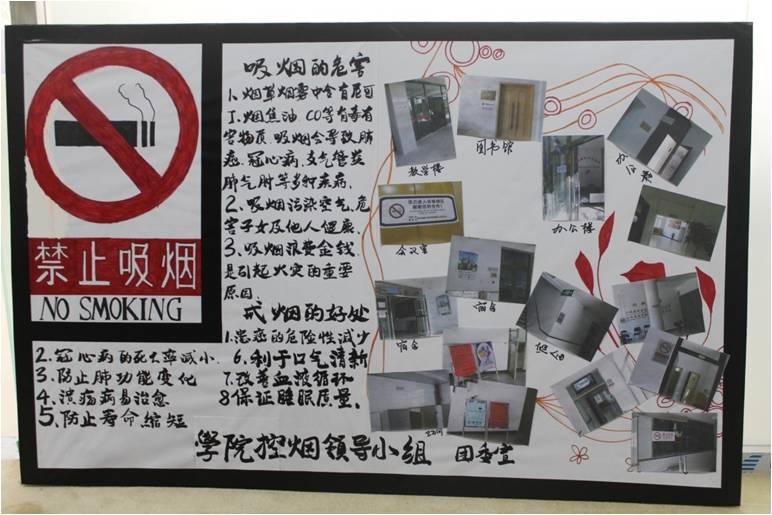 禁止吸烟
NO SMOKING
吸烟的危害
1、烟草烟雾中含有尼可
丁、烟焦油 CO等有毒有
害物质、吸烟会导致肺
癌、冠心病、支气管炎
肺气肿等多种疾病、
2、吸烟污染空气、危
害子女及他人健康、
3、吸烟浪费金钱、
是引起火灾的重要
原因、
戒烟的好处
1、患癌的危险性减少
2、冠心病的死亡率减小、
3、防止肺功能变化
4、溃疡病易治愈
5、防止寿命缩短
6、利于口气清新
7、改善血液循环
8保证睡眠质量、
學院控烟领导小组 团委宣
教学楼
图书馆
办公楼
会议室
宿舍
宿舍